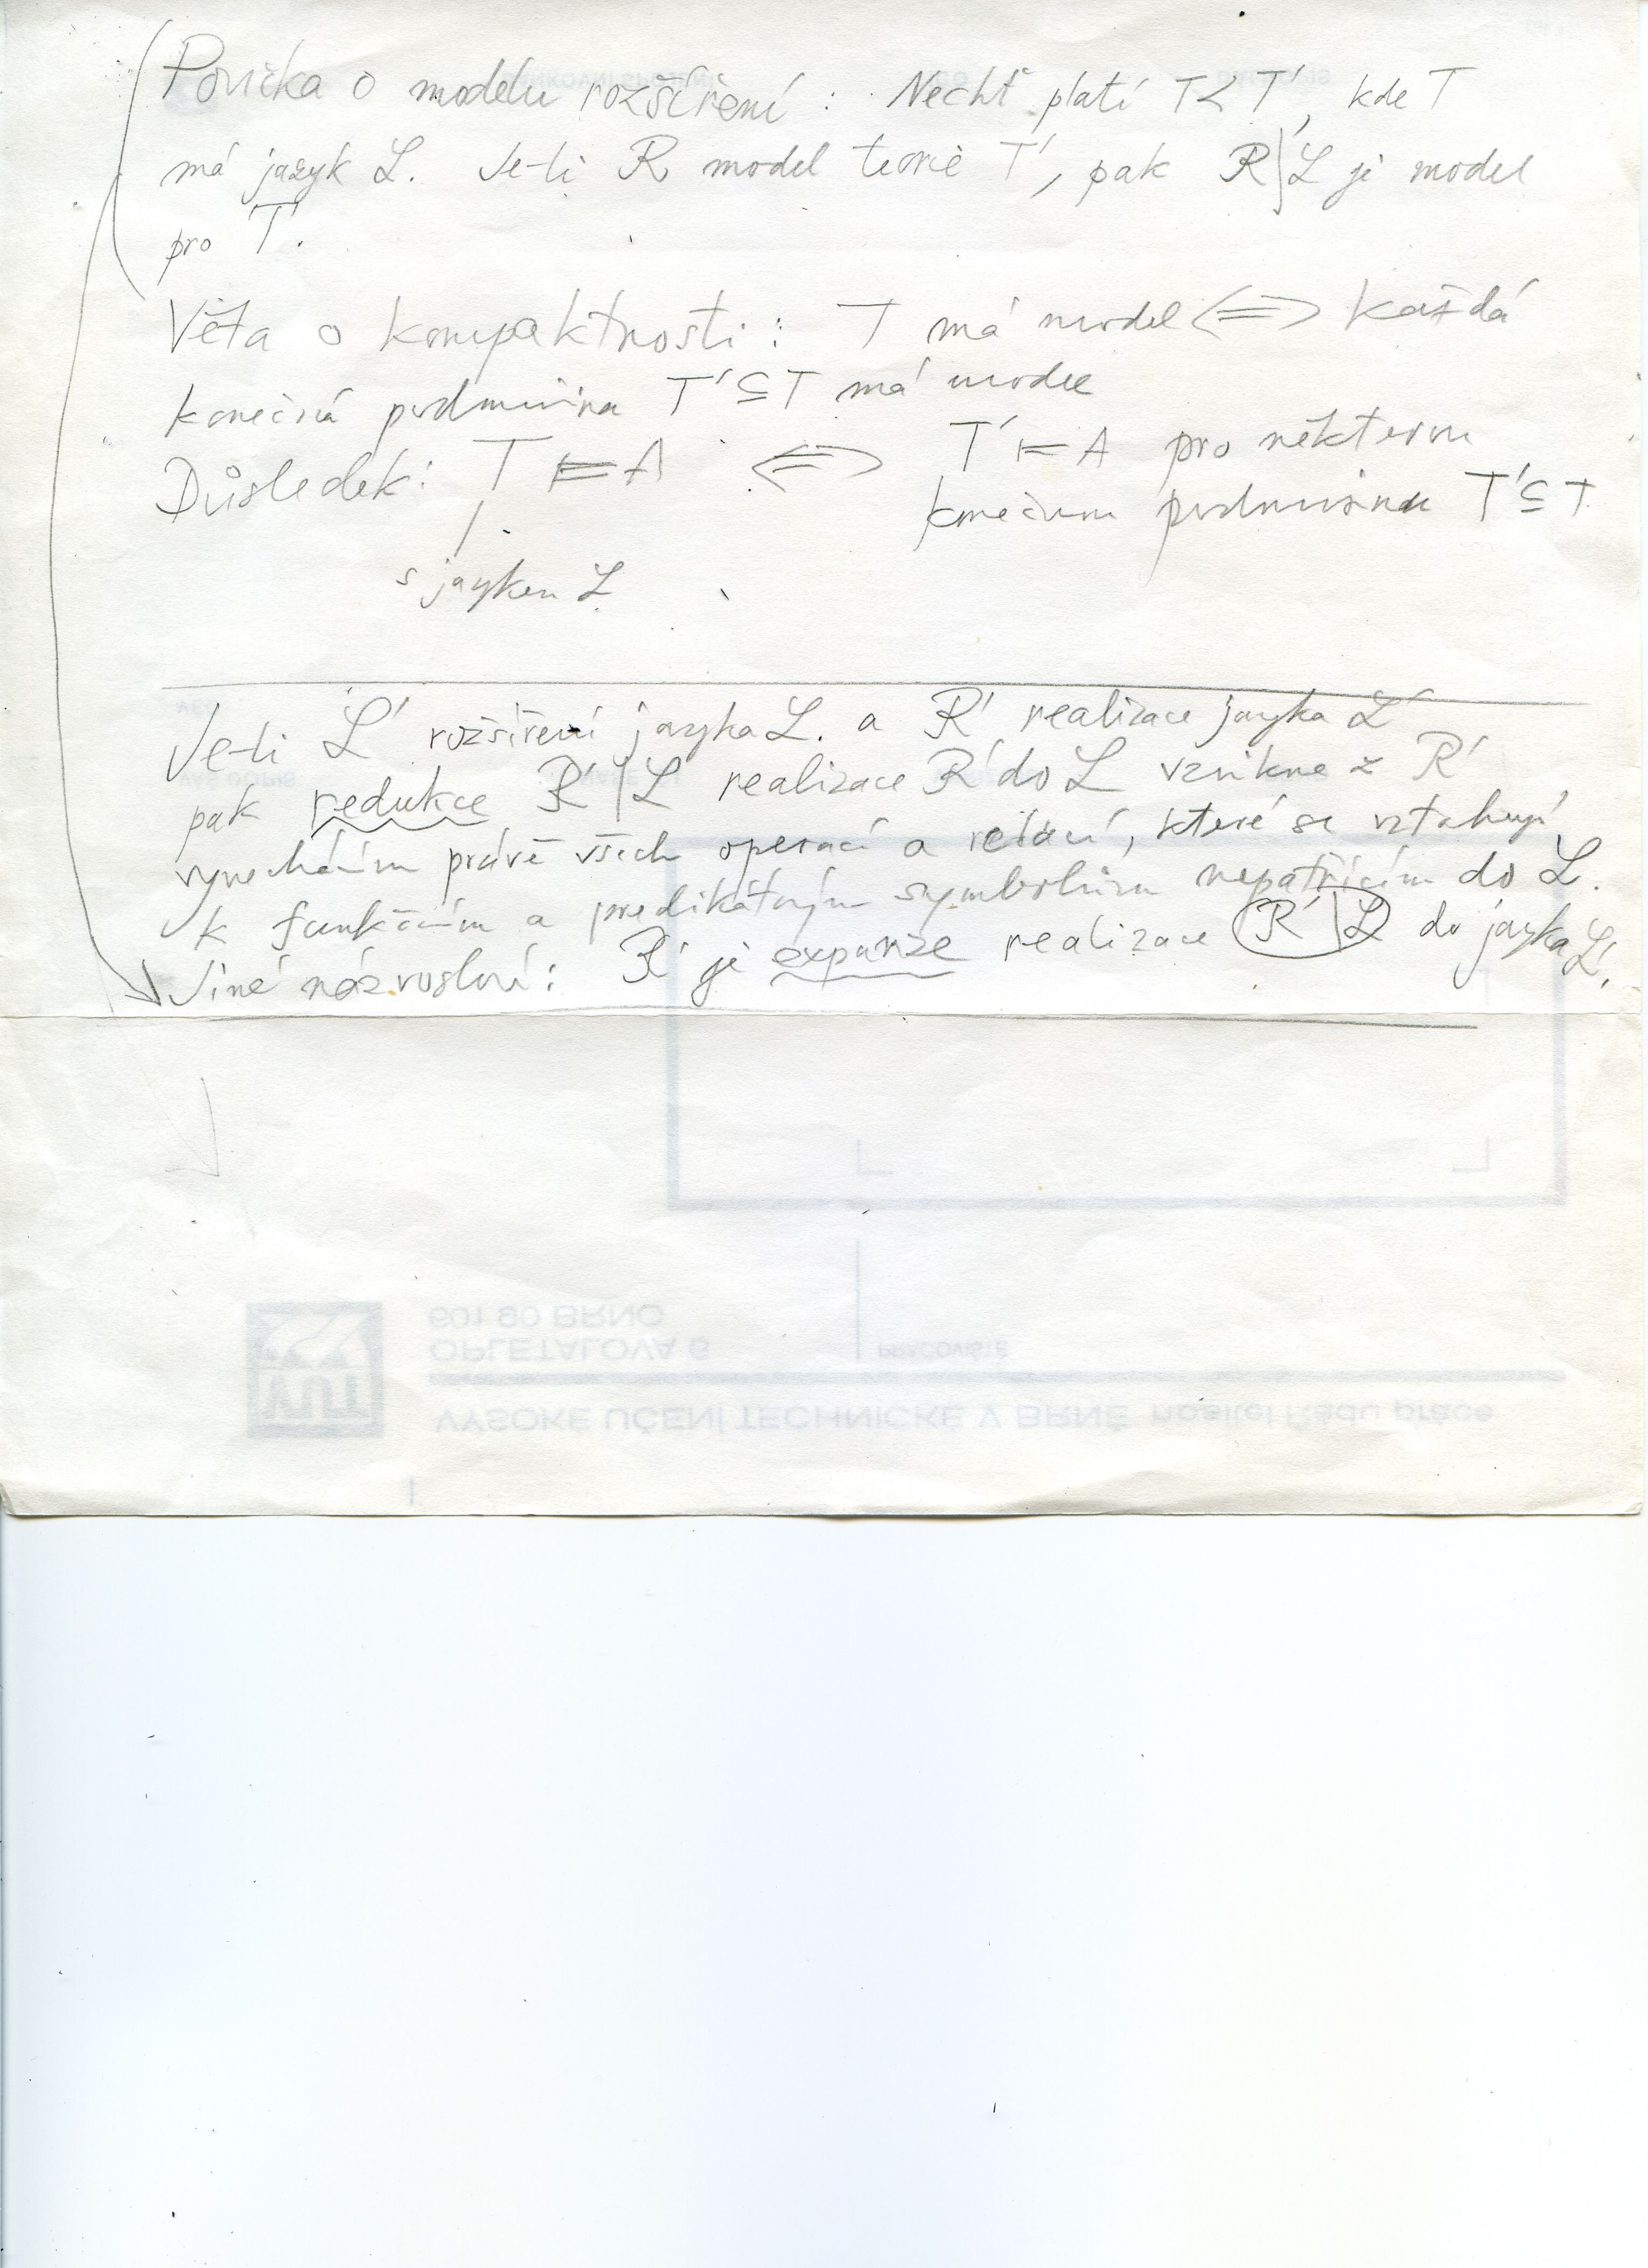 Poučka o modelu rozšíření : Nechť platí T < T′, kde T
má jazyk L. Je-li R model teorie T′, pak R|L je model
pro T.
Věta o kompaktnosti : T má model <=> každá
konečná podmnožina T′ ⊆ T má model
Důsledek : T ⊨ A <=> T′ ⊨ A pro některou
konečnou podmnožinu T′ ⊆ T
s jazykem L
Je-li L′ rozšíření jazyka L. a R′ realizace jazyka L′
pak redukce R′|L realizace R′ do L vznikne z R′
vynecháním právě všech operací a relací, které se vztahují
k funkčním a predikátovým symbolům nepatřícím do L.
Jiné názvosloví : R′ je expanze realizace R′|L do jazyka L′.
601 90 BRNO
OPLETALOVA 6
PRACOVIŠTĚ
VUT
VYSOKÉ UČENÍ TECHNICKÉ V BRNĚ nositel Řádu práce